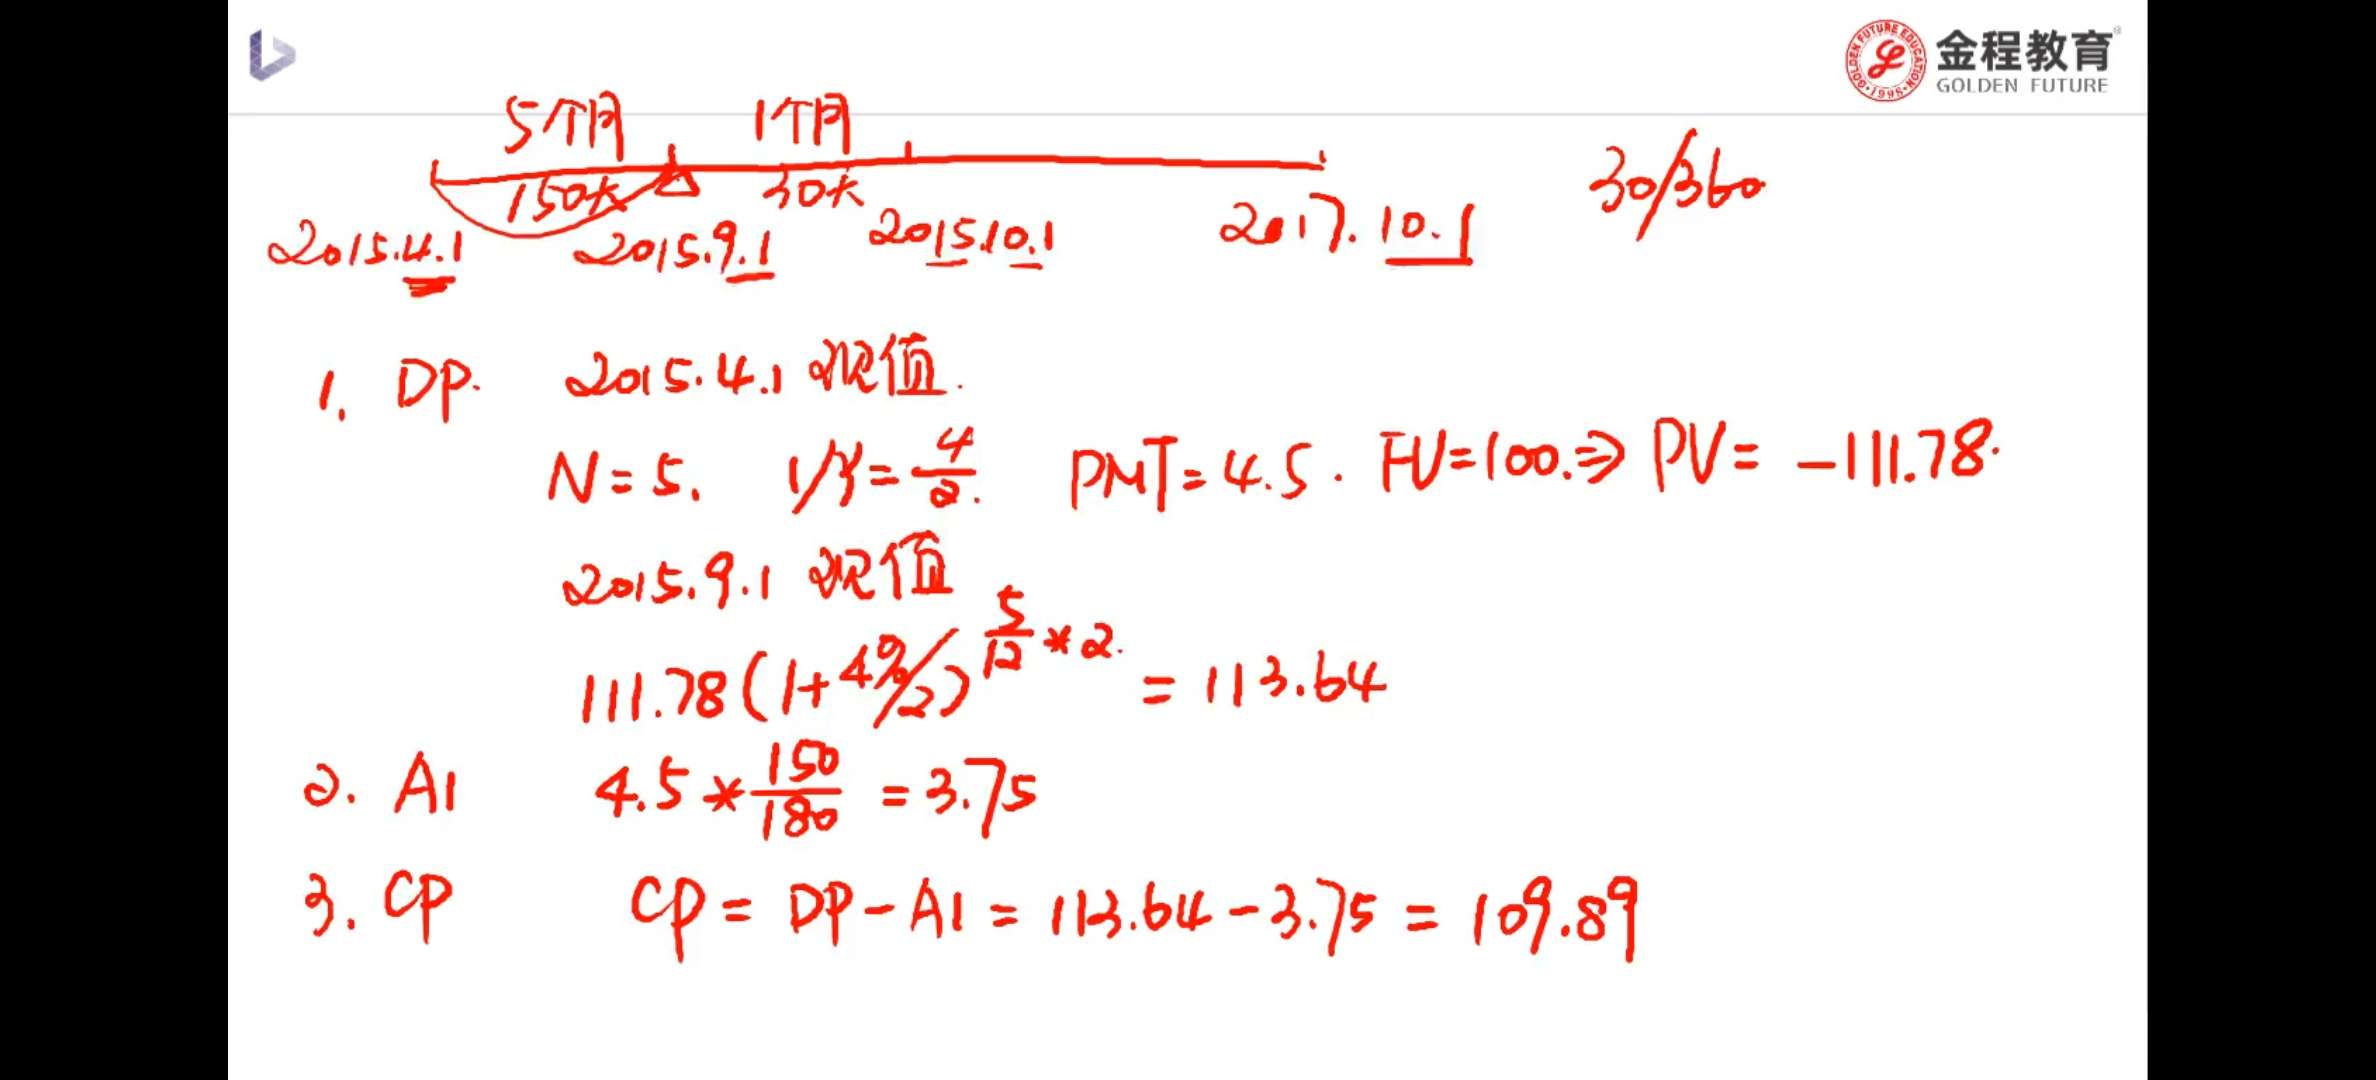 金程教育
GOLDEN FUTURE
GOLDEN FUTURE EDUCATION
·1998·
5个月 1个月
150天 30天
30/360
2015.4.1 2015.9.1 2015.10.1 2017.10.1
1. DP. 2015.4.1 现值.
N=5. I/Y=4/2. PMT=4.5. FV=100.⇒ PV= -111.78.
2015.9.1 现值
111.78(1+4%/2)^(5/12*2.) = 113.64
2. AI 4.5*150/180 =3.75
3. CP CP = DP-AI = 113.64-3.75 = 109.89